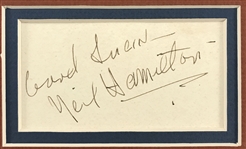 Good Luck—
Neil Hamilton—